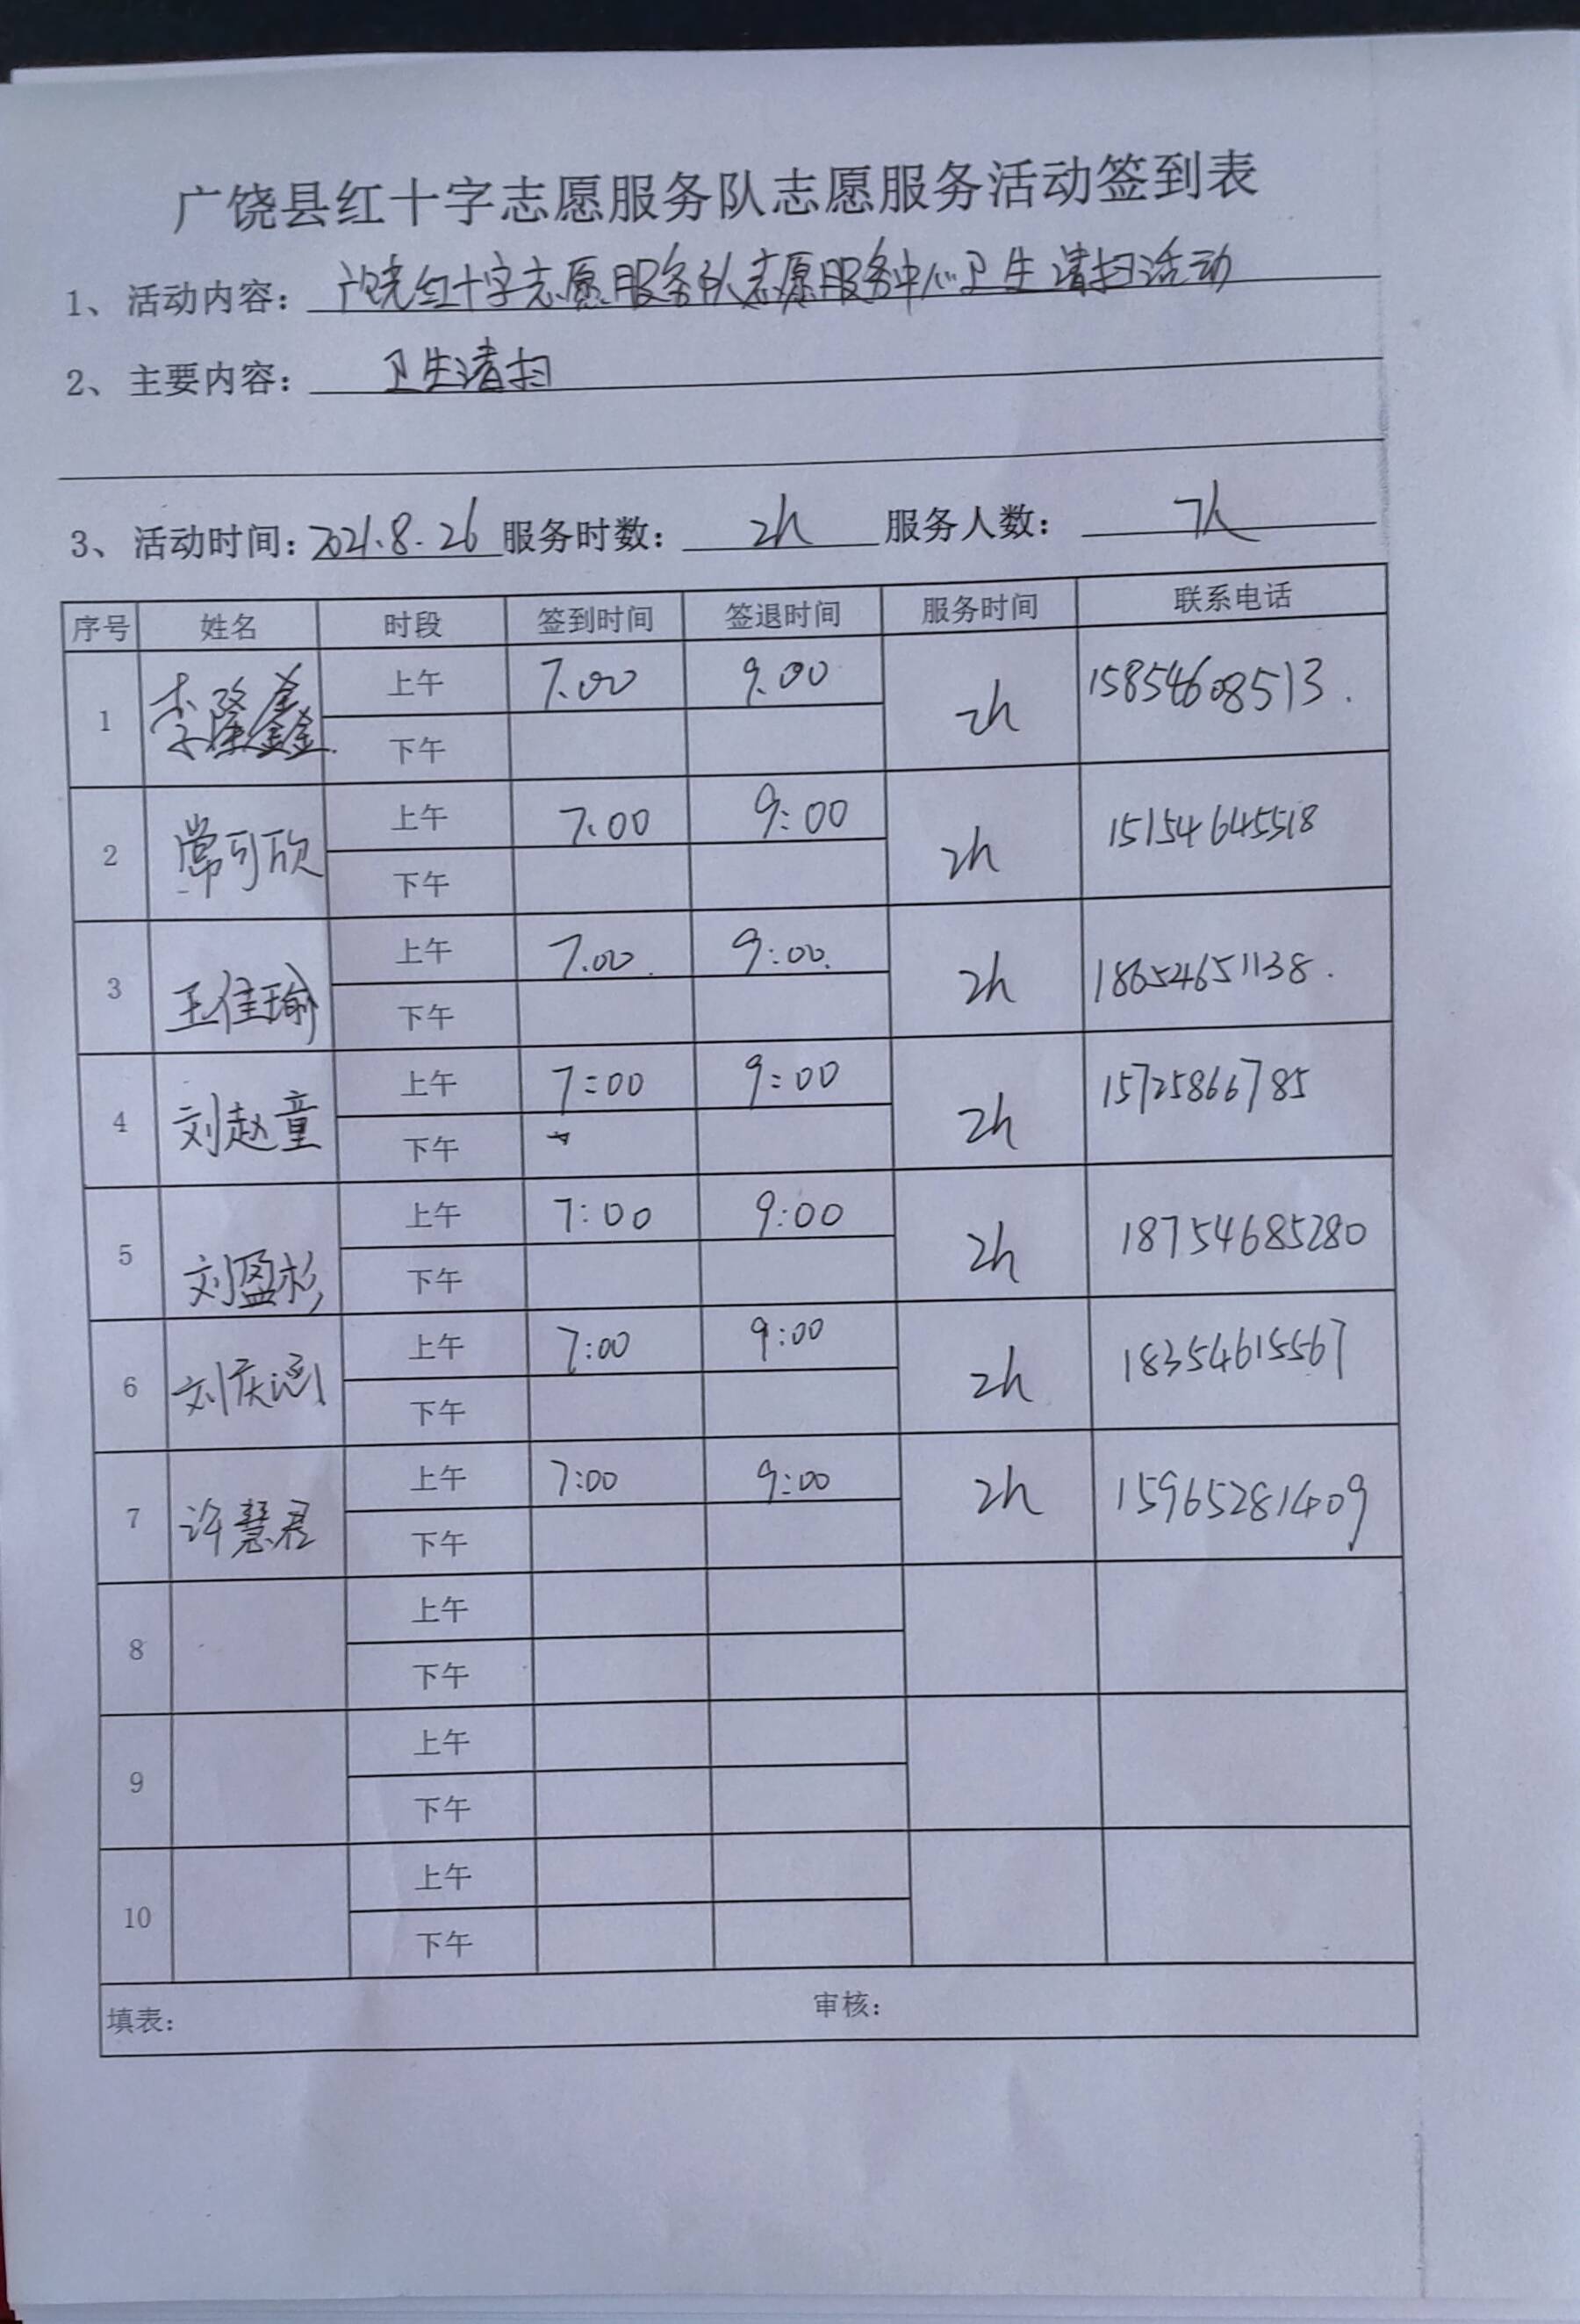 广饶县红十字志愿服务队志愿服务活动签到表
1、活动内容：广饶红十字志愿服务队志愿服务中心卫生清扫活动
2、主要内容：卫生清扫
3、活动时间：2021.8.26 服务时数：2h 服务人数：7人
序号 姓名 时段 签到时间 签退时间 服务时间 联系电话
1 李隆鑫 上午 7.00 9.00 2h 15854608513.
下午
2 常可欣 上午 7.00 9:00 2h 15154645518
下午
3 王佳瑜 上午 7.00. 9:00. 2h 18654651138.
下午
4 刘赵童 上午 7:00 9:00 2h 15725866785
下午
5 刘盈杉 上午 7:00 9:00 2h 18754685280
下午
6 刘庆涵 上午 7:00 9:00 2h 18354615567
下午
7 许慧君 上午 7:00 9:00 2h 15965281409
下午
8 上午
下午
9 上午
下午
10 上午
下午
填表： 审核：